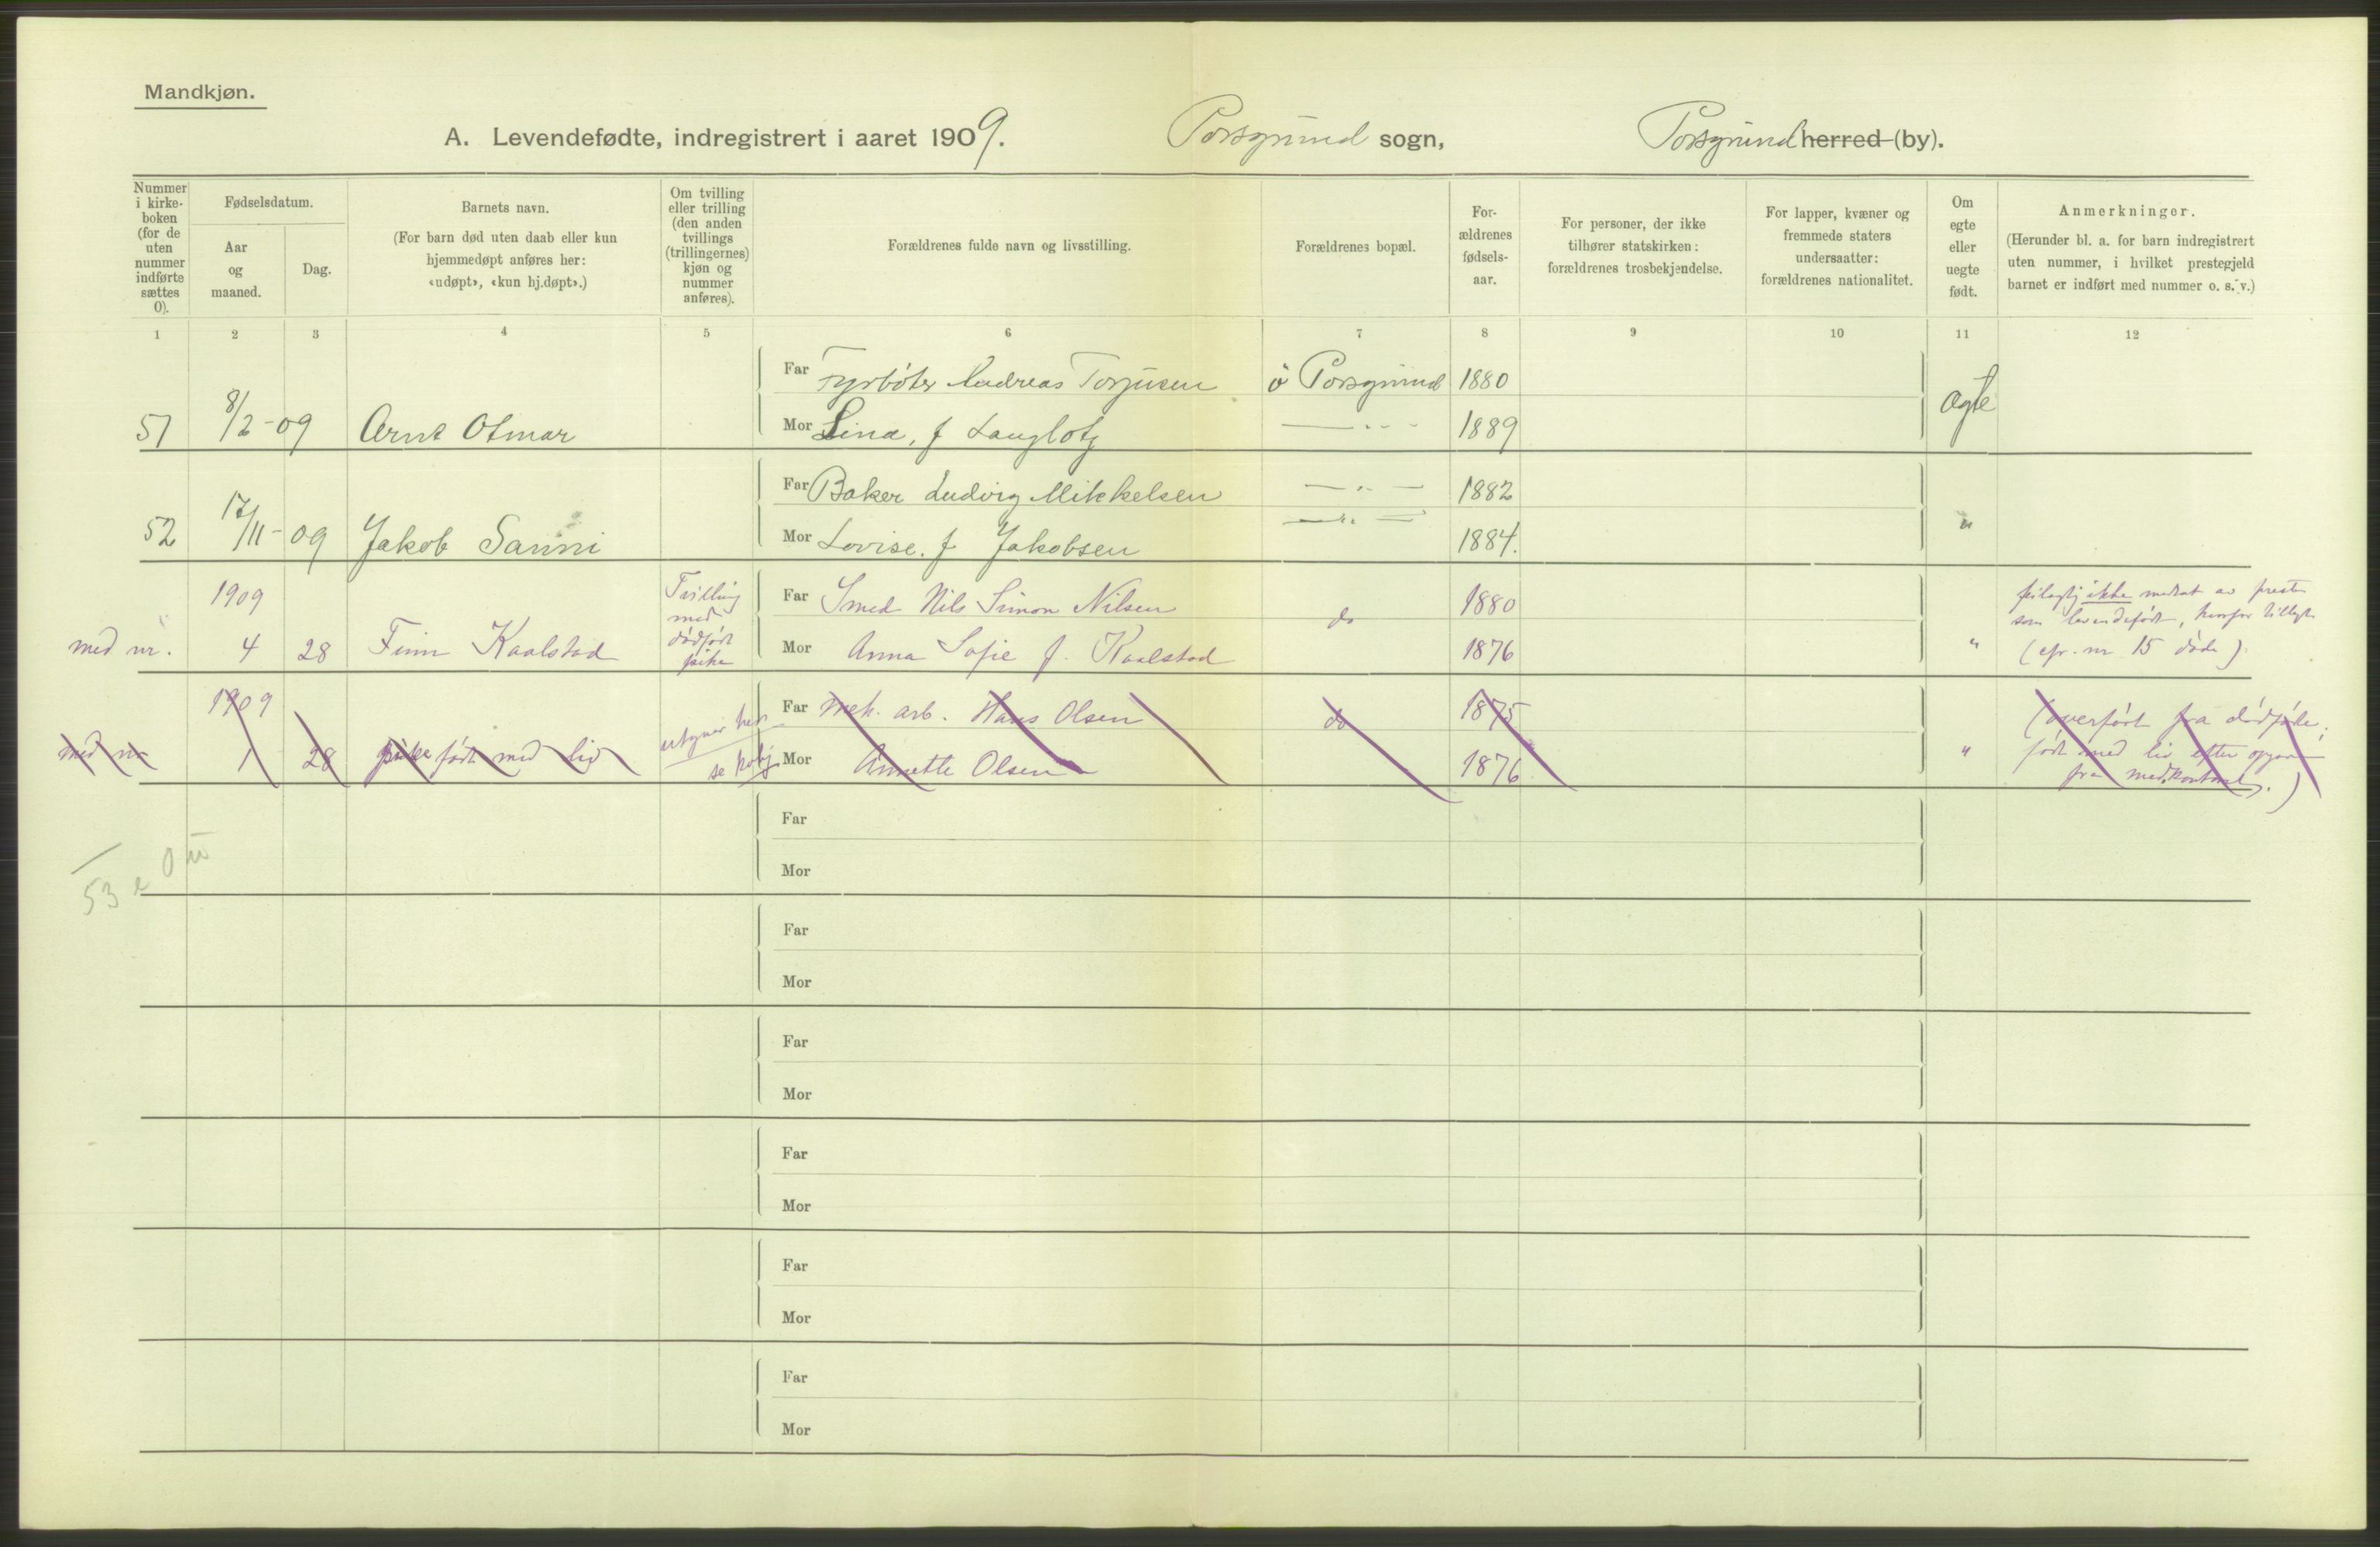 Mandkjøn.
A. Levendefødte, indregistrert i aaret 1909. Porsgrund sogn, Porsgrund herred (by).
Nummer i kirke-boken (for de uten nummer indførte sættes 0).
Fødselsdatum.
Aar og maaned.
Dag.
Barnets navn.
(For barn død uten daab eller kun hjemmedøpt anføres her: «udøpt», «kun hj.døpt».)
Om tvilling eller trilling (den anden tvillings (trillingernes) kjøn og nummer anføres).
Forældrenes fulde navn og livsstilling.
Forældrenes bopæl.
For-ældrenes fødsels-aar.
For personer, der ikke tilhører statskirken: forældrenes trosbekjendelse.
For lapper, kvæner og fremmede staters undersaatter: forældrenes nationalitet.
Om egte eller uegte født.
Anmerkninger.
(Herunder bl. a. for barn indregistrert uten nummer, i hvilket prestegjeld barnet er indført med nummer o. s. v.)
1 2 3 4 5 6 7 8 9 10 11 12
Far Fyrbøter Andreas Torjusen ö Porsgrund 1880
51 8/2-09 Arnt Otmar Mor Lina, f Langlotz —"— 1889 Ægte
Far Baker Ludvig Mikkelsen —"— 1882
52 17/11-09 Jakob Sanni Mor Lovise. f Jakobsen —"— 1884. "
1909 Tvilling med dødfødt pike Far Smed Nils Simon Nilsen do 1880
med nr. 4 28 Finn Kaalstad Mor Anna Sofie f. Kaalstad 1876 "
ikke av presten
som levendefødt, hvorfor
(cfr. nr 15 døde).
1909 Far Mek. arb. Hans Olsen do 1875
med nr 1 28 pike født med liv Mor Annette Olsen 1876 "
utgaar her
se
(overført fra dødfødte;
født med liv efter opgave
fra med.kontoret.)
53
Far
Mor
Far
Mor
Far
Mor
Far
Mor
Far
Mor
Far
Mor